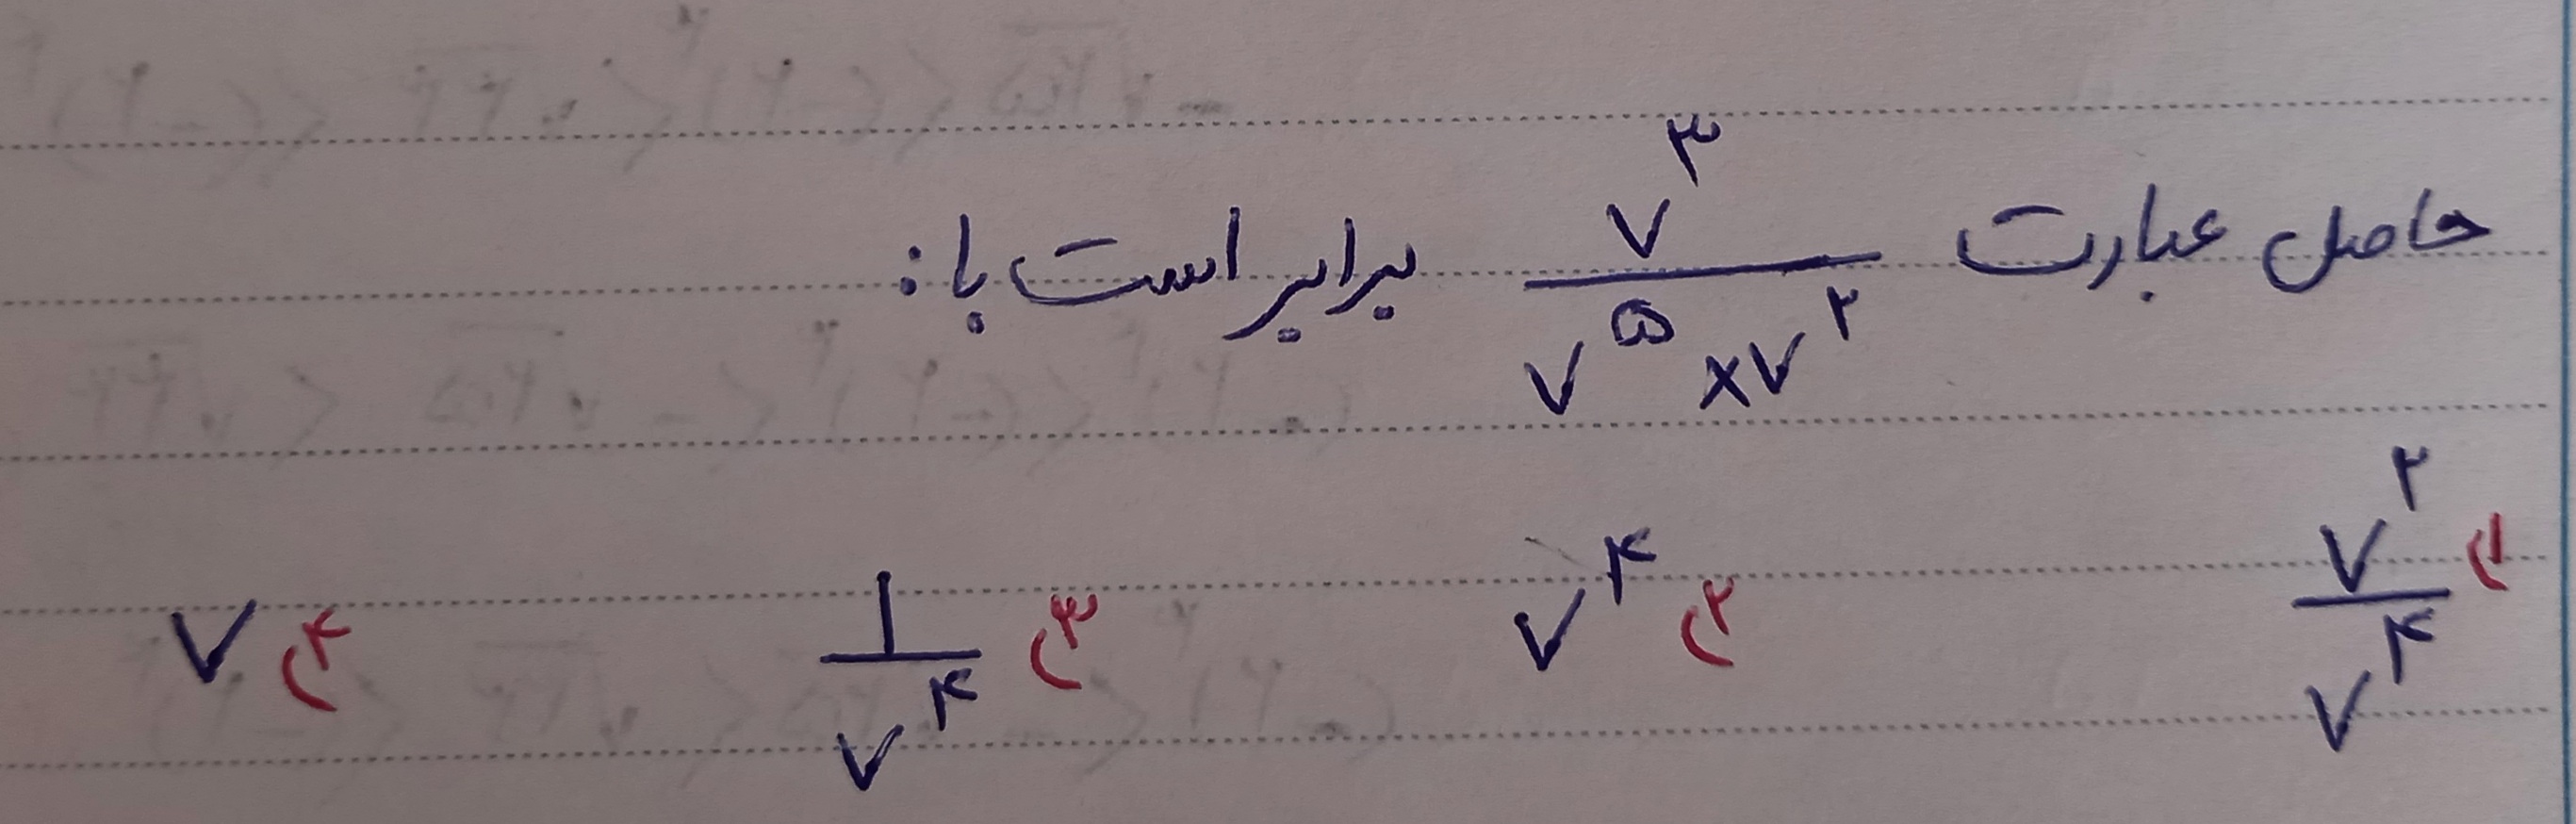 حاصل عبارت ۷^۳ / (۷^۵ × ۷^۲) برابر است با:
۱) ۷^۲ / ۷^۴ ۲) ۷^۴ ۳) ۱ / ۷^۴ ۴) ۷